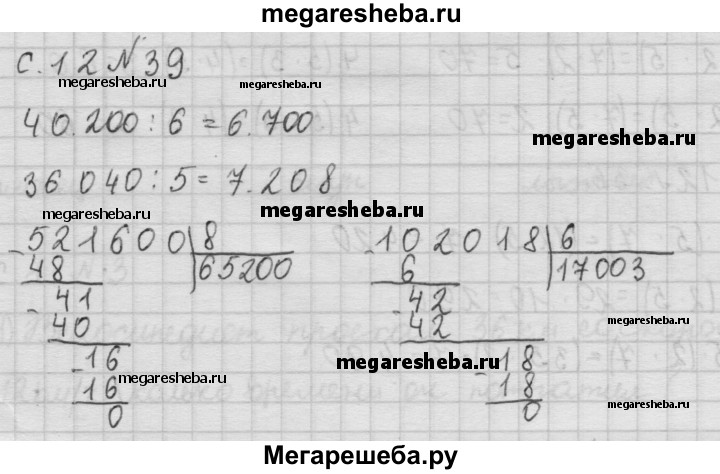 megaresheba.ru
с. 12 № 39.
megaresheba.ru megaresheba.ru
40.200 : 6 = 6.700
megaresheba.ru
36 040 : 5 = 7.208
megaresheba.ru
521600 8
48 65200
41
40
16
16
0
megaresheba.ru
102018 6
6 17003
42
42
18
18
0
megaresheba.ru
megaresheba.ru
megaresheba.ru
megaresheba.ru
Мегарешеба.ру